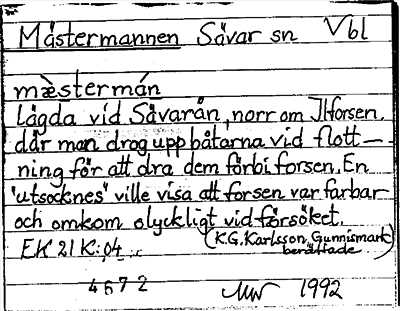 Mästermannen Sävar sn Vbl
mæ̀stermán
lägda vid Sävarån, norr om Ilforsen.
där man drog upp båtarna vid flott-
ning för att dra dem förbi forsen. En
"utsocknes" ville visa att forsen var farbar
och omkom olyckligt vid försöket.
EK 21 K: 04 (K.G. Karlsson, Gunnismark
berättade.)
4672 1992